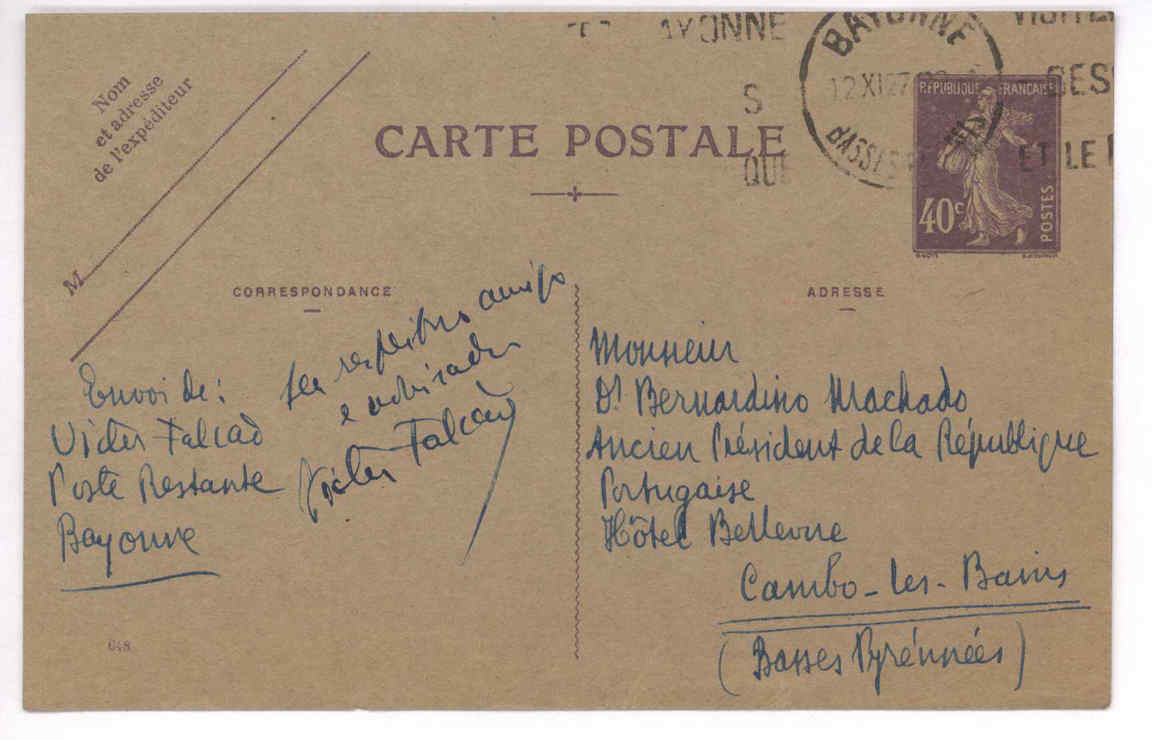 BAYONNE
12 XI 27
BASSES
VISITE
GES
S
QUE
ET LE
REPUBLIQUE FRANCAISE
40c
POSTES
Nom
et adresse
de l'expéditeur
M
CARTE POSTALE
CORRESPONDANCE
ADRESSE
Envoi de:
Victor Falcão
Poste Restante
Bayonne
amigo
e
Victor Falcão
Monsieur
Dr Bernardino Machado
Ancien Président de la République
Portugaise
Hôtel Bellevue
Cambo-les-Bains
(Basses Pyrénnées)
648